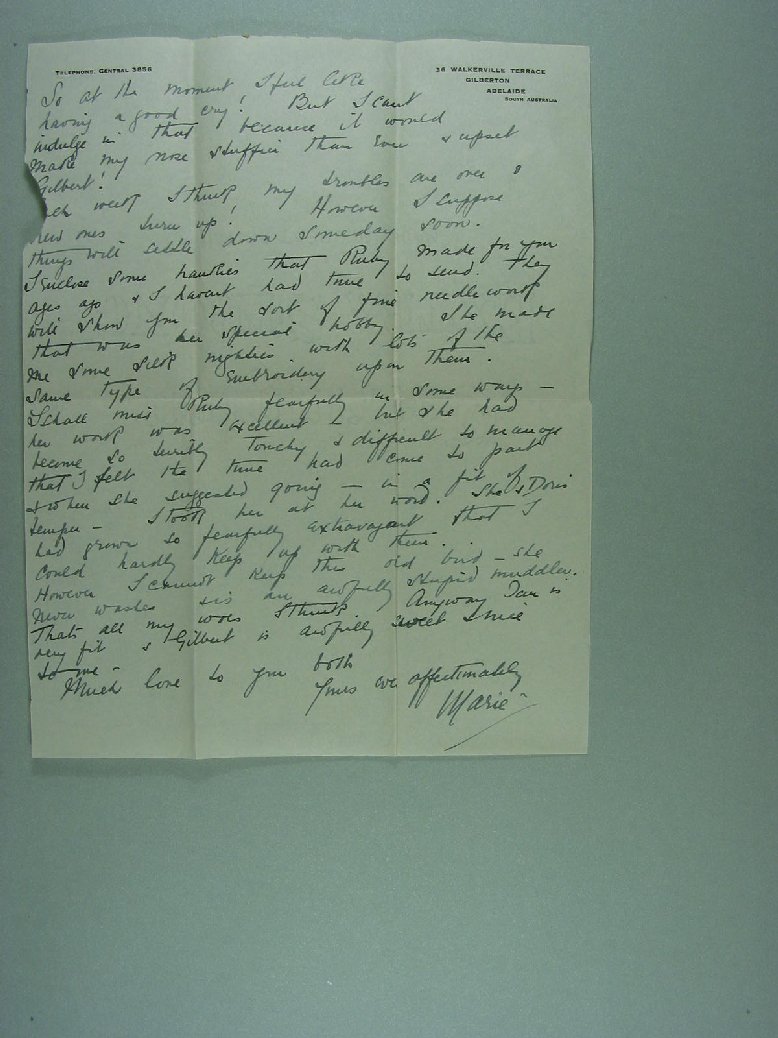 TELEPHONE. CENTRAL 3856
36 WALKERVILLE TERRACE
GILBERTON
ADELAIDE
SOUTH AUSTRALIA
So at the moment I feel like
having a good cry! But I cant
indulge in that because it would
make my nose stuffier than ever & upset
Gilbert!
week I think my troubles are over &
new ones turn up! However I suppose
things will settle down someday soon.
I enclose some hankies that Ruby made for you
ages ago & I havent had time to send. They
will show you the sort of fine needlework
that was her special hobby. She made
me some silk nighties with lots of the
same type of embroidery upon them.
I shall miss Ruby fearfully in some ways —
her work was excellent — but she had
become so terribly touchy & difficult to manage
that I felt the time had come to part
& when she suggested going — in a fit of
temper — I took her at her word. She & Doris
had grown so fearfully extravagant that I
could hardly keep up with them.
However I cannot keep this old bird — she
never washes is an awfully stupid muddler.
Thats all my woes I think. Anyway Ian is
very fit & Gilbert is awfully sweet & nice
to me —
Much love to you both
Yours ever affectionately
Marie